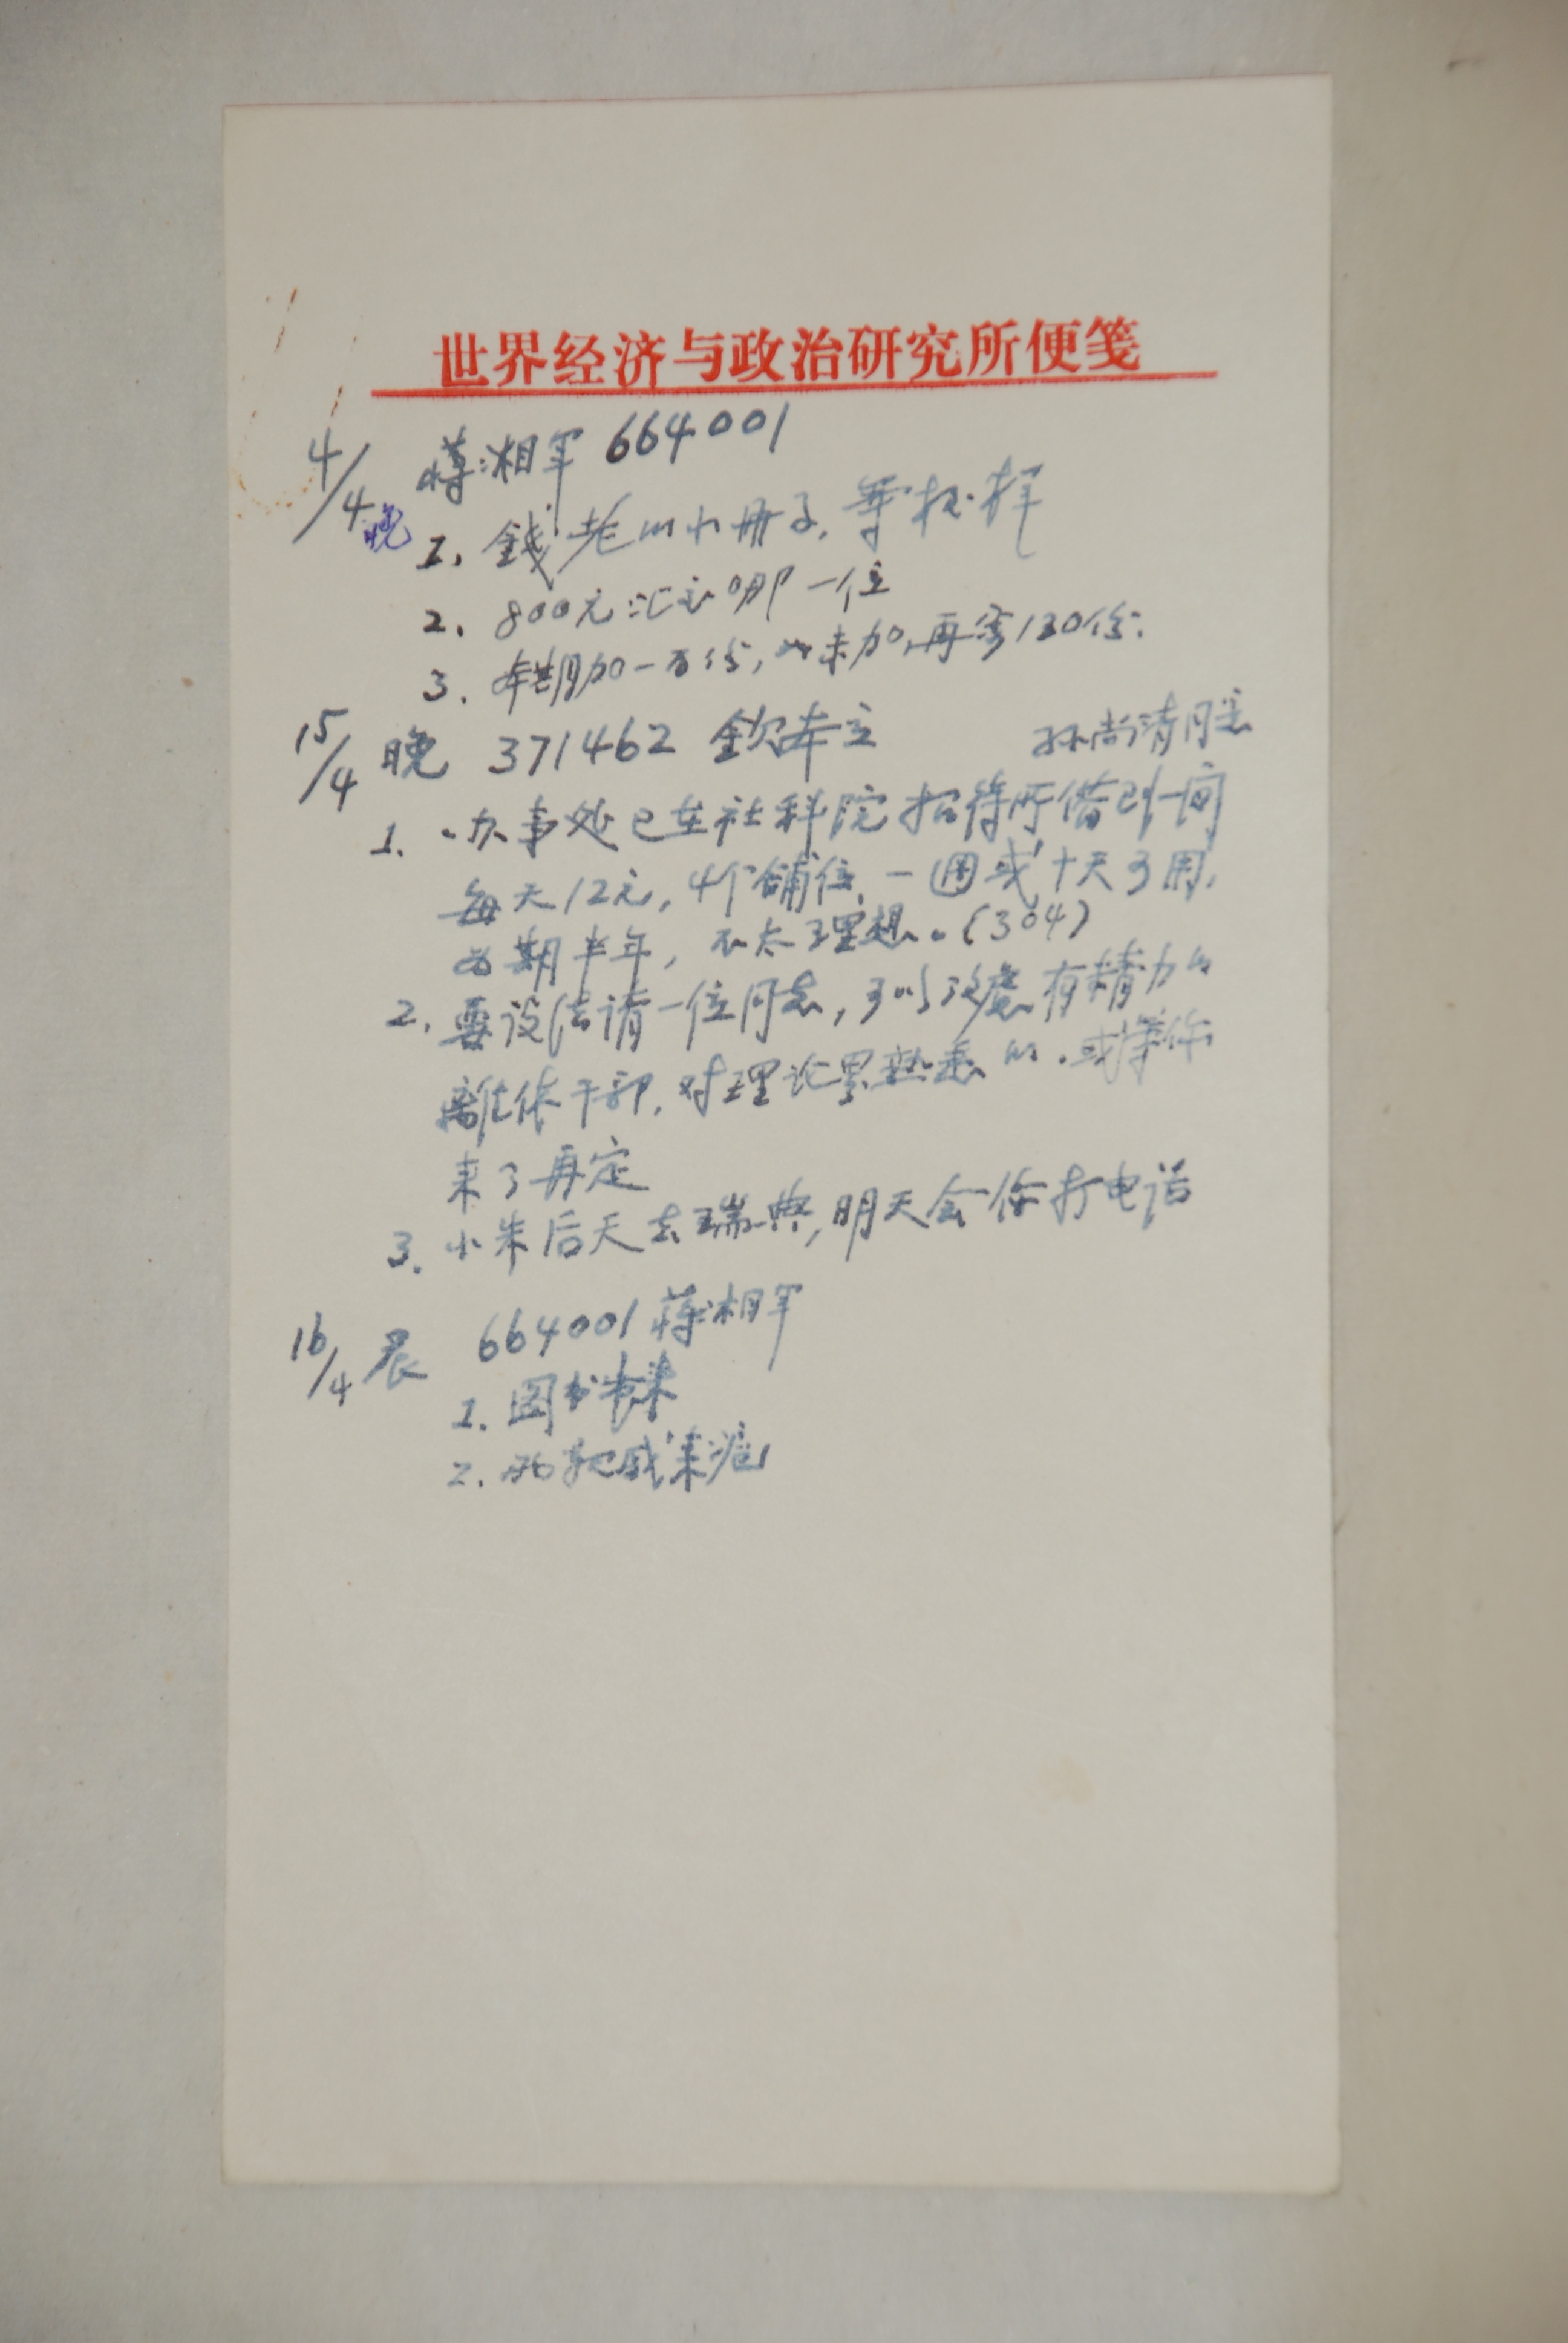 世界经济与政治研究所便笺
4/4 晚 蒋湘军 664001
1. 錢老的小册子,等校样
2. 800元汇主哪一位
3. 本期加一百份,未加,再寄130份.
15/4 晚 371462 钦本立 孙尚清同志
1. 办事处已在社科院招待所借到一间
每天12元,4个铺位,一週或十天可用,
为期半年,不太理想。(304)
2. 要设法请一位同志,可以改虑有精力的
离休干部,对理论界熟悉的.或等你
来了再定
3. 小朱后天去瑞典,明天会你打电话
16/4 晨 664001 蒋湘军
1. 图书
2. 或来沪